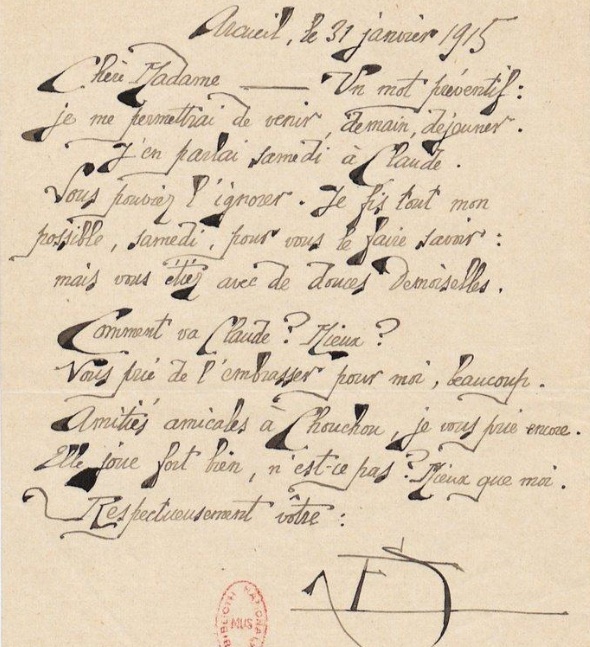 Arcueil, le 31 janvier 1915
Chère Madame — Un mot préventif :
je me permettrai de venir, demain, déjeuner.
J'en parlai samedi à Claude.
Vous pouviez l'ignorer. Je fis tout mon
possible, samedi, pour vous le faire savoir :
mais vous étiez avec de douces Demoiselles.
Comment va Claude ? Mieux ?
Vous prie de l'embrasser pour moi, beaucoup.
Amitiés amicales à Chouchou, je vous prie encore.
Elle joue fort bien, n'est-ce pas ? Mieux que moi.
Respectueusement vôtre :
ES
BIBLIOTH NATIONALE
MUS